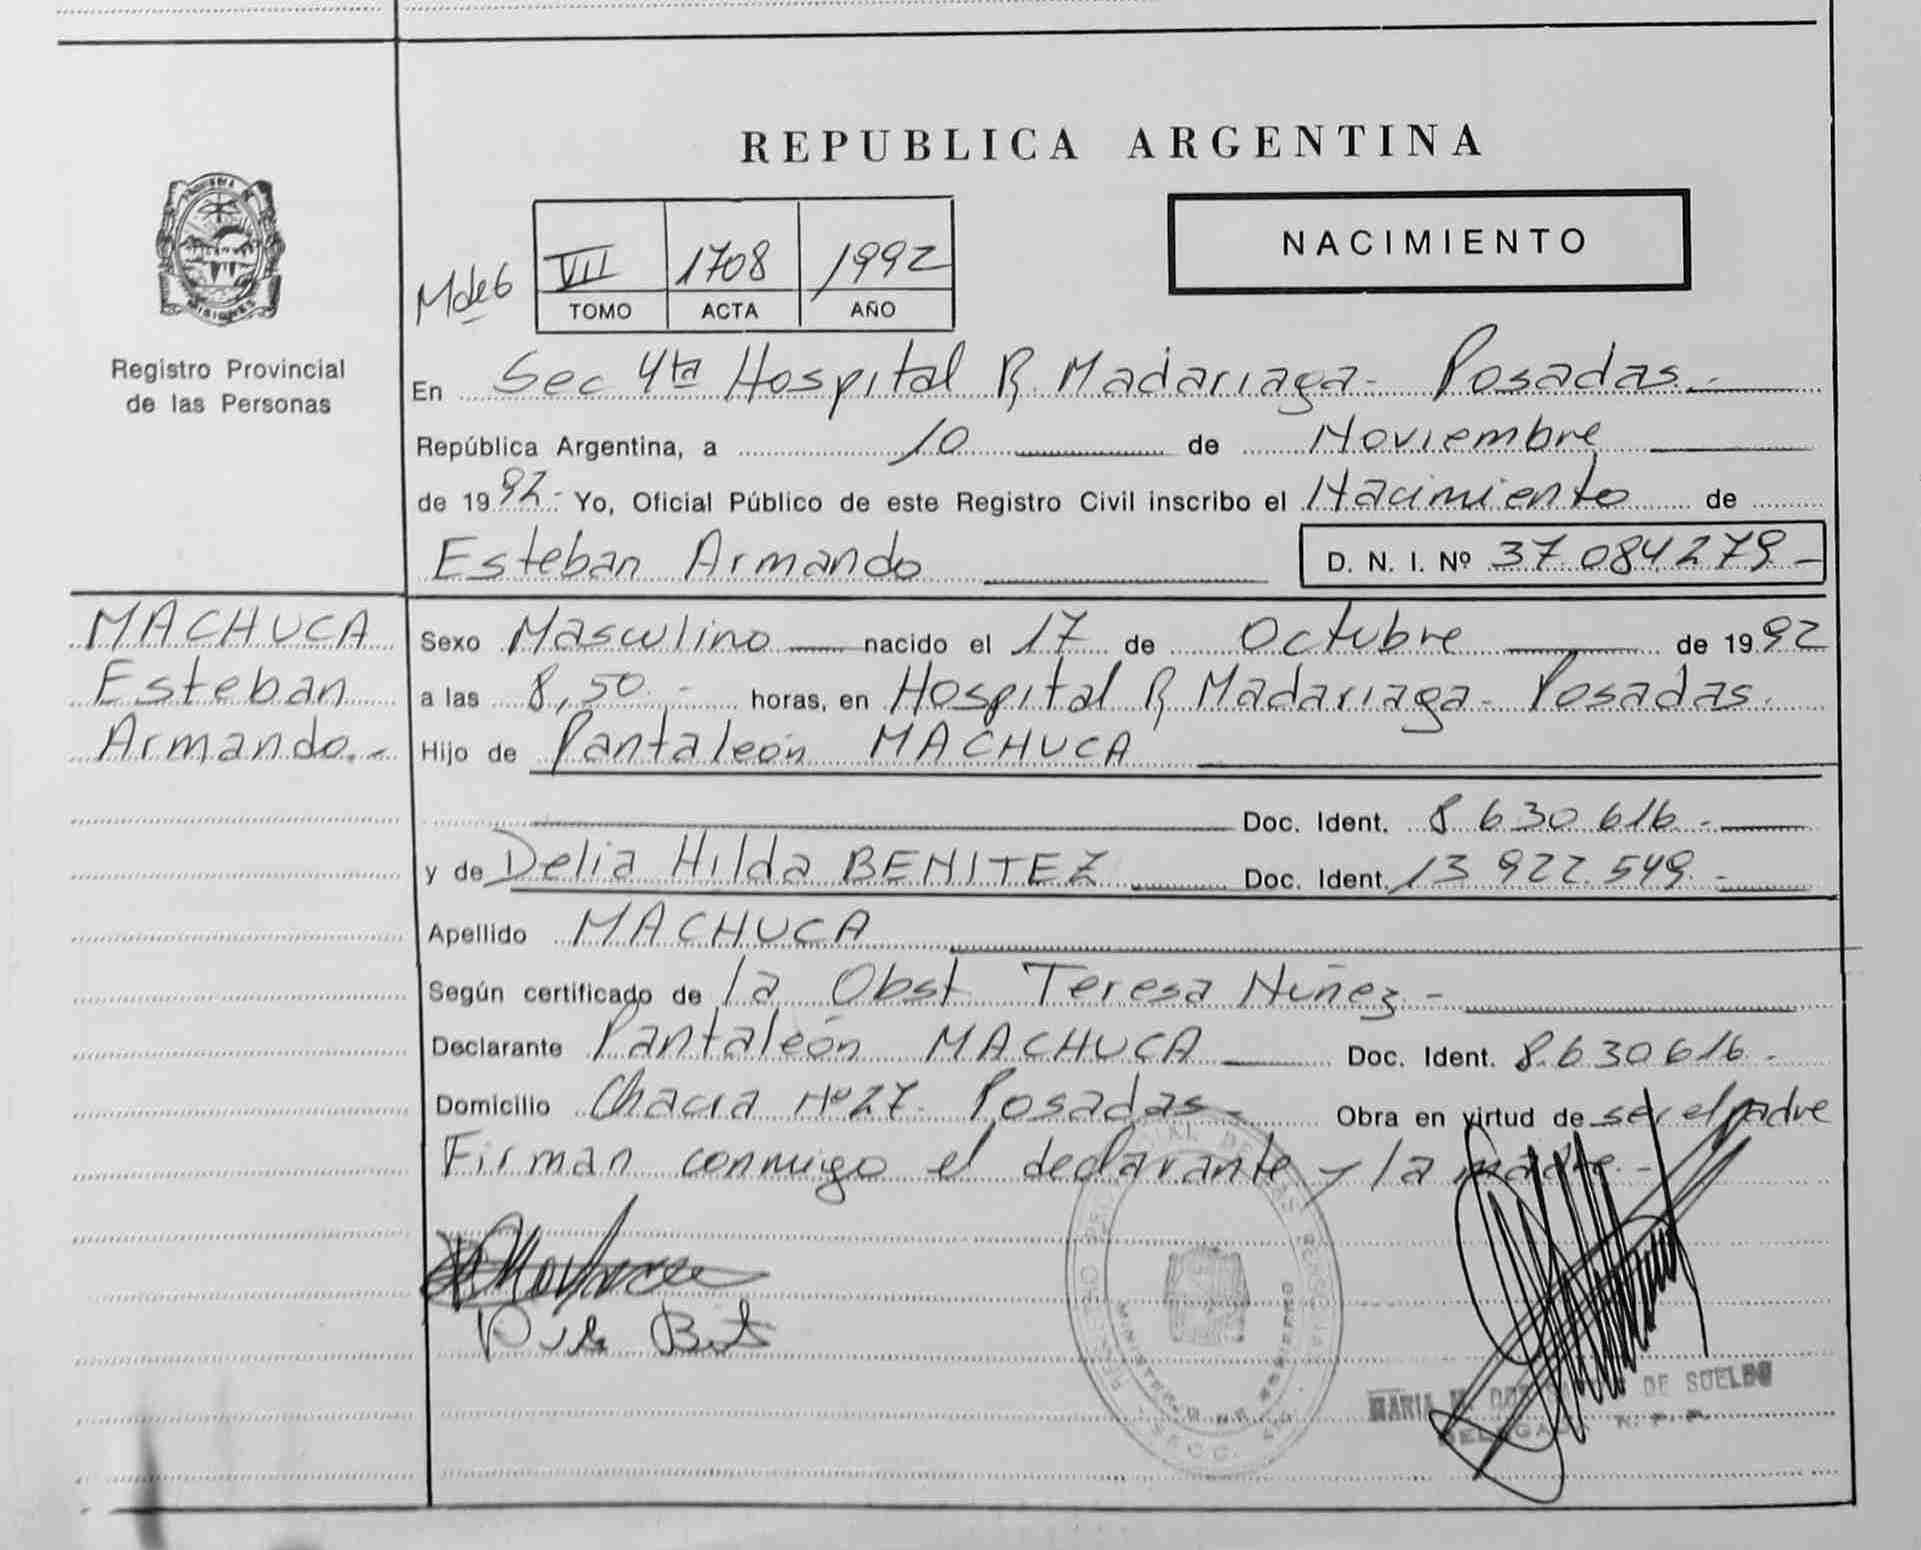 REPUBLICA ARGENTINA
NACIMIENTO
VII 1708 1992
TOMO ACTA AÑO
Registro Provincial
de las Personas
En Sec 4ta Hospital R. Madariaga - Posadas.-
República Argentina, a 10 de Noviembre
de 1992.- Yo, Oficial Público de este Registro Civil inscribo el Nacimiento de
Esteban Armando D. N. I. Nº 37.084.279.-
MACHUCA
Esteban
Armando.-
Sexo Masculino nacido el 17 de Octubre de 1992
a las 8,50.- horas, en Hospital R. Madariaga - Posadas.
Hijo de Pantaleón MACHUCA
Doc. Ident. 8.630.616.-
y de Delia Hilda BENITEZ Doc. Ident. 13.922.549.-
Apellido MACHUCA
Según certificado de la Obst Teresa Nuñez -
Declarante Pantaleón MACHUCA Doc. Ident. 8.630616.-
Domicilio Chacra Nº 27. Posadas.- Obra en virtud de ser el padre
Firman conmigo el declarante y la madre.-
MARIA DE SUELDO
DELEGADA R. P. P.